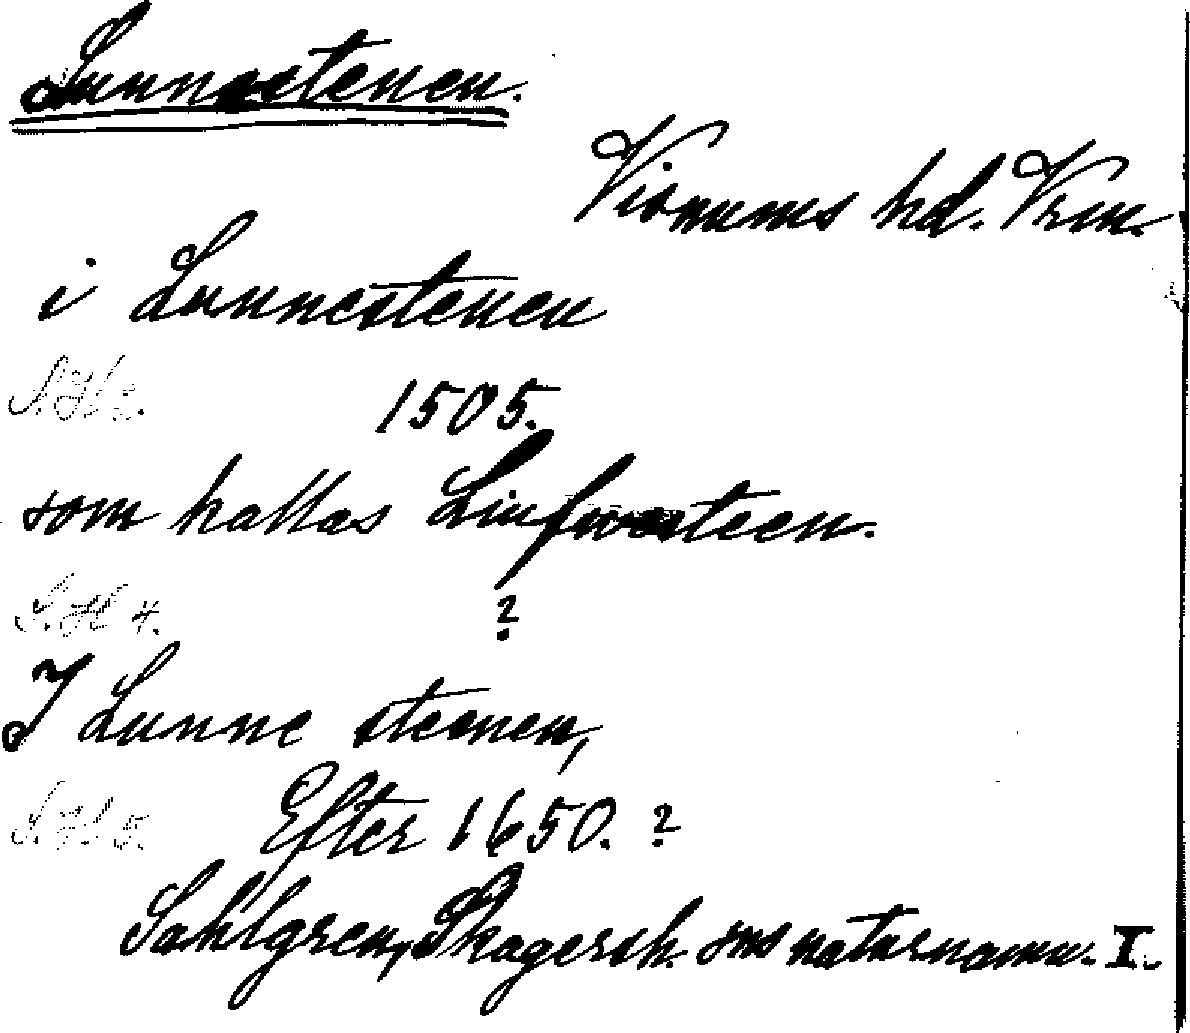 Lunnestenen.
Visnums hd. Vrm.
i Lunnestenen
S.H 2. 1505.
som kallas Linfwesteen.
S.H 4. ?
I Lunne steenen,
S.H 5. Efter 1650. ?
Sahlgren, Skagersh. sns naturnamn. I.